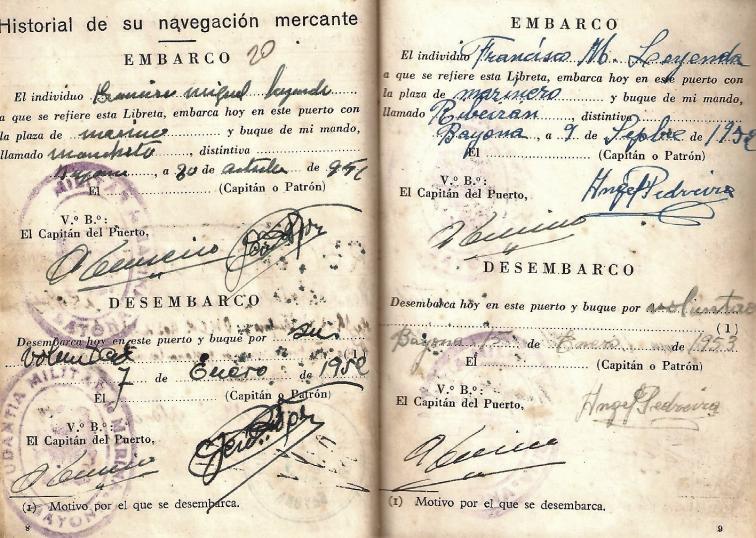 Historial de su navegación mercante
EMBARCO 20
El individuo Francisco Miguel Leyenda
a que se refiere esta Libreta, embarca hoy en este puerto con
la plaza de marinero y buque de mi mando,
llamado , distintiva
Bayona, a 20 de de 195
El (Capitán o Patrón)
V.º B.º:
El Capitán del Puerto,
DESEMBARCO
Desembarca hoy en este puerto y buque por su
voluntad (1)
7 de Enero de 1952
El (Capitán o Patrón)
V.º B.º:
El Capitán del Puerto,
(1) Motivo por el que se desembarca.
8
EMBARCO
El individuo Francisco M. Leyenda
a que se refiere esta Libreta, embarca hoy en este puerto con
la plaza de marinero y buque de mi mando,
llamado Ribeiran, distintiva
Bayona, a 9 de Sepbre de 1952
El (Capitán o Patrón)
V.º B.º:
El Capitán del Puerto,
Angel Pedreira
DESEMBARCO
Desembarca hoy en este puerto y buque por voluntad
(1)
Bayona 15 de Enero de 1953
El (Capitán o Patrón)
V.º B.º:
El Capitán del Puerto,
Angel Pedreira
(1) Motivo por el que se desembarca.
9